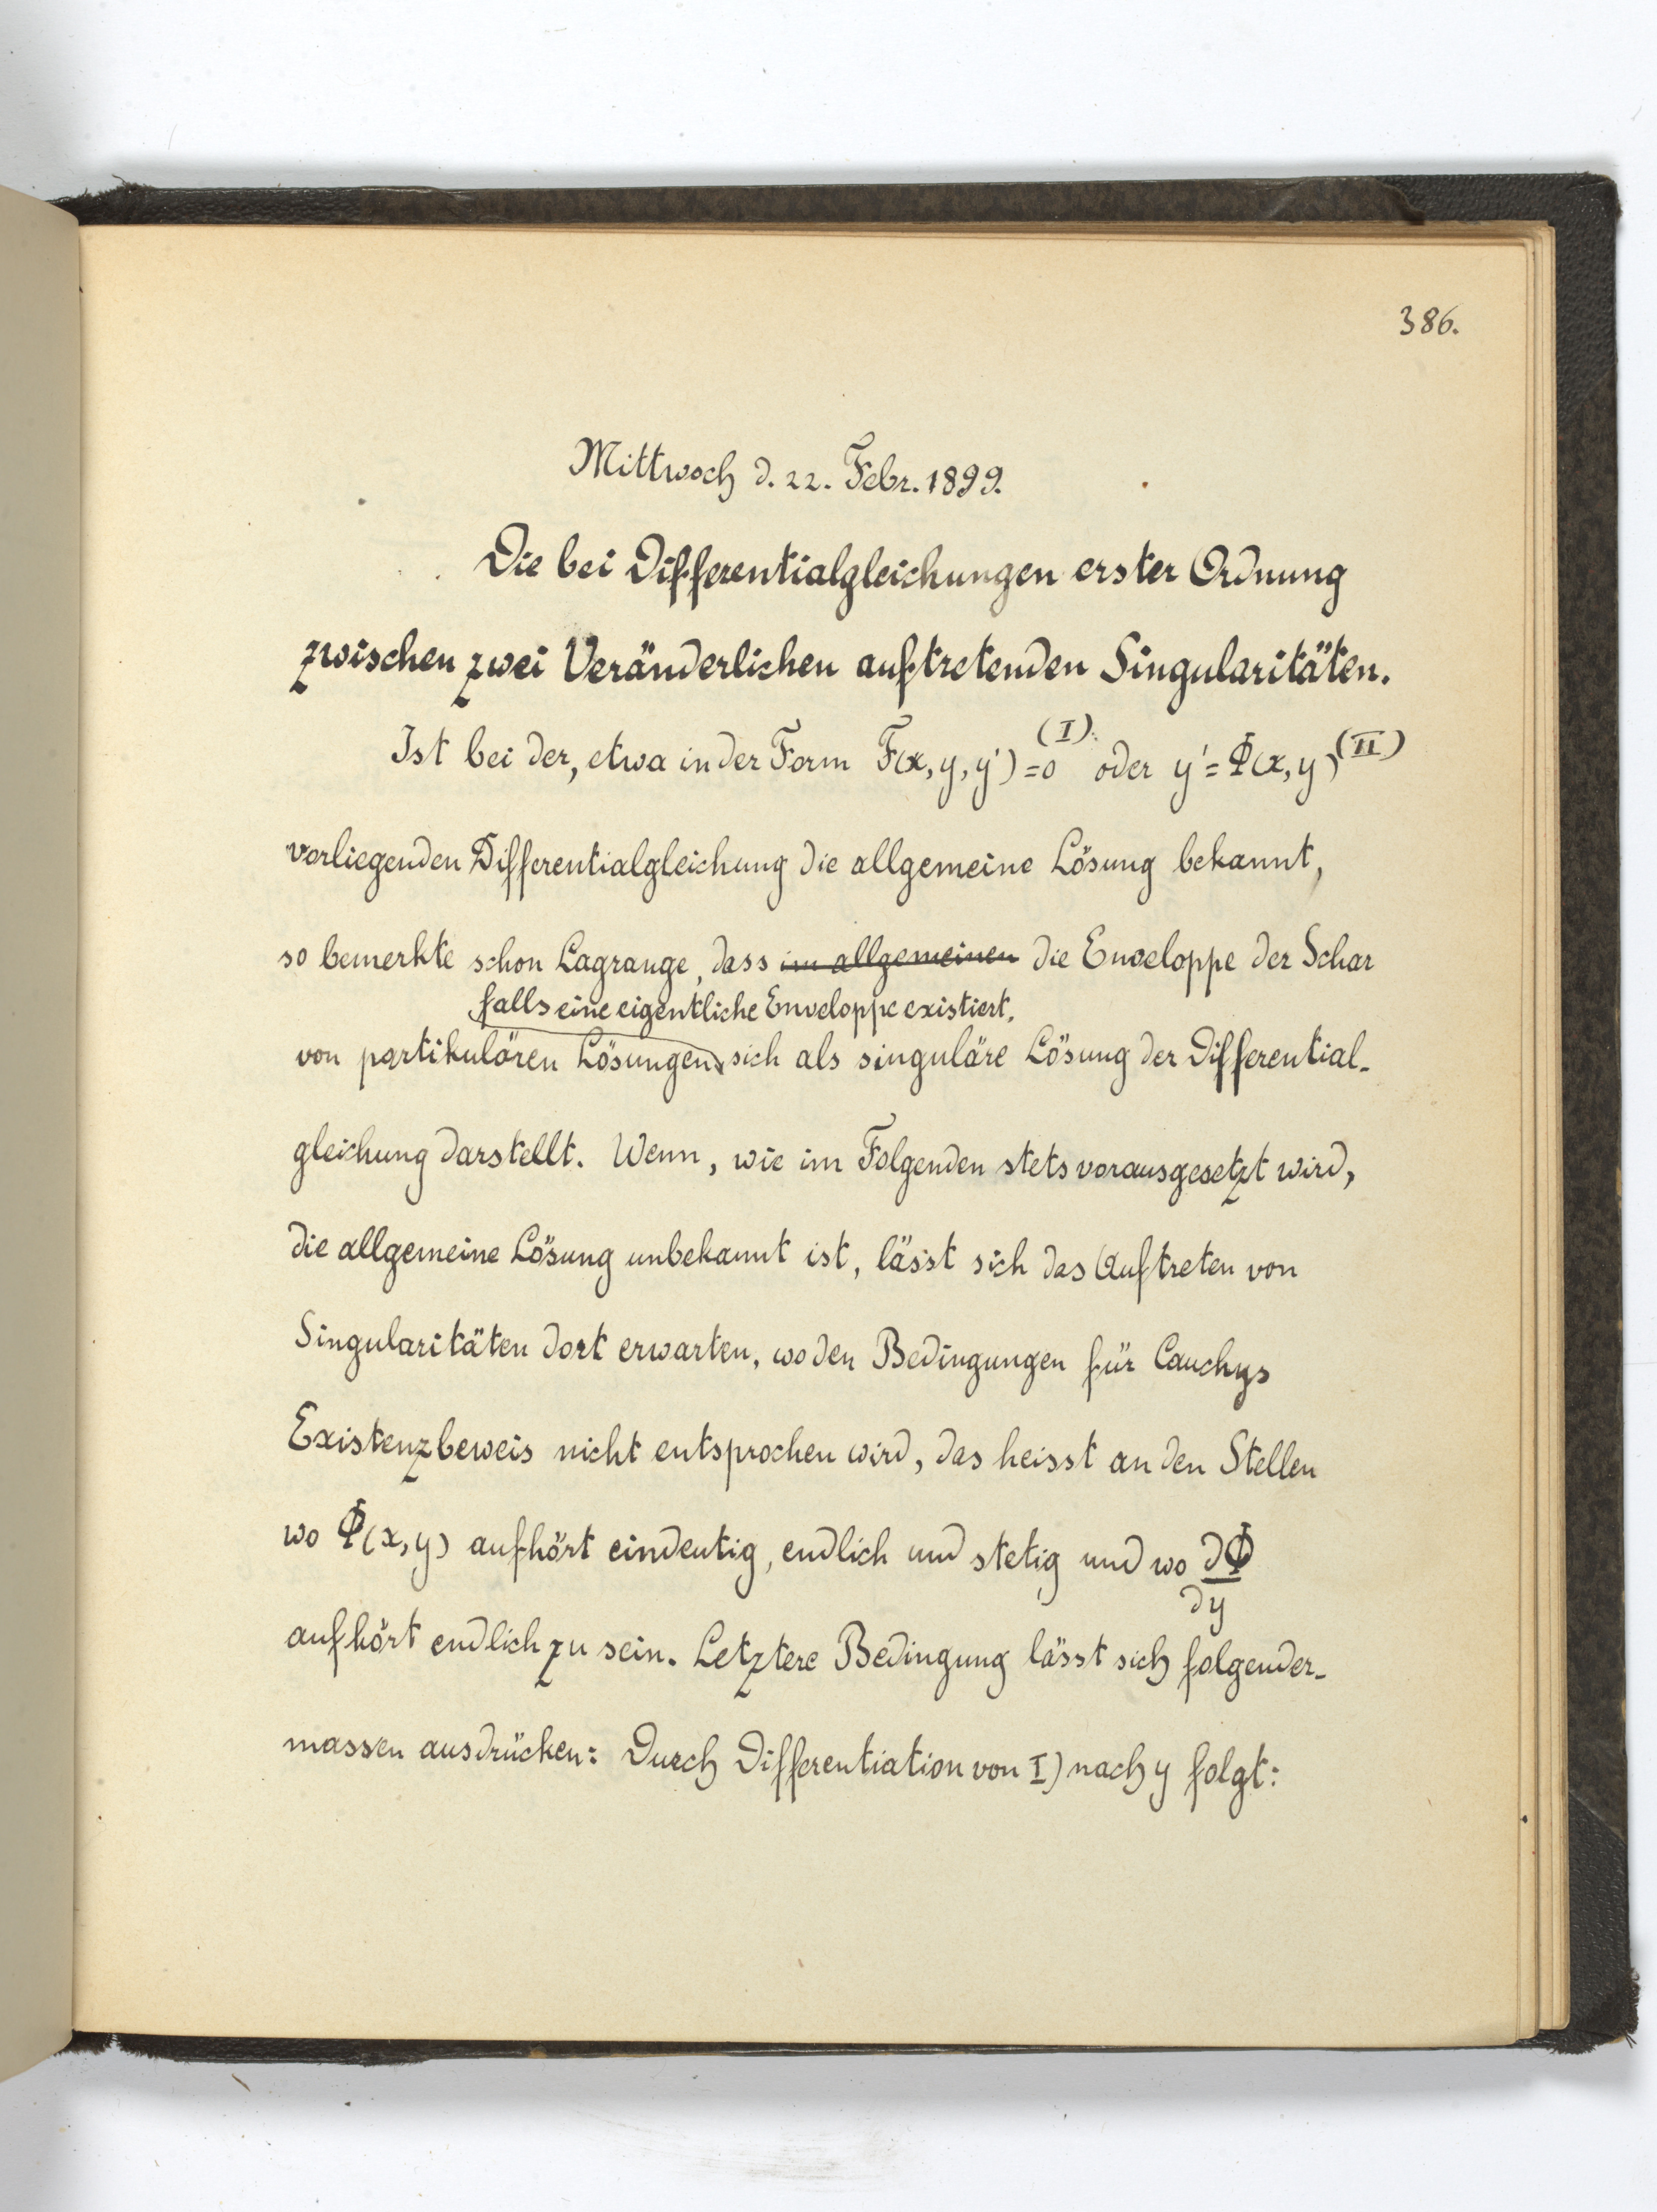 386.
Mittwoch d. 22. Febr. 1899.
Die bei Differentialgleichungen erster Ordnung
zwischen zwei Veränderlichen auftretenden Singularitäten.
Ist bei der, etwa in der Form F(x, y, y') = 0 (I) oder y' = Φ(x, y) (II)
vorliegenden Differentialgleichung die allgemeine Lösung bekannt,
so bemerkte schon Lagrange, dass im allgemeinen die Enveloppe der Schar
falls eine eigentliche Enveloppe existiert,
von partikulären Lösungen sich als singuläre Lösung der Differential-
gleichung darstellt. Wenn, wie im Folgenden stets vorausgesetzt wird,
die allgemeine Lösung unbekannt ist, lässt sich das Auftreten von
Singularitäten dort erwarten, wo den Bedingungen für Cauchys
Existenzbeweis nicht entsprochen wird, das heisst an den Stellen
wo Φ(x, y) aufhört eindeutig, endlich und stetig und wo ∂Φ/∂y
aufhört endlich zu sein. Letztere Bedingung lässt sich folgender-
massen ausdrücken: Durch Differentiation von I) nach y folgt: